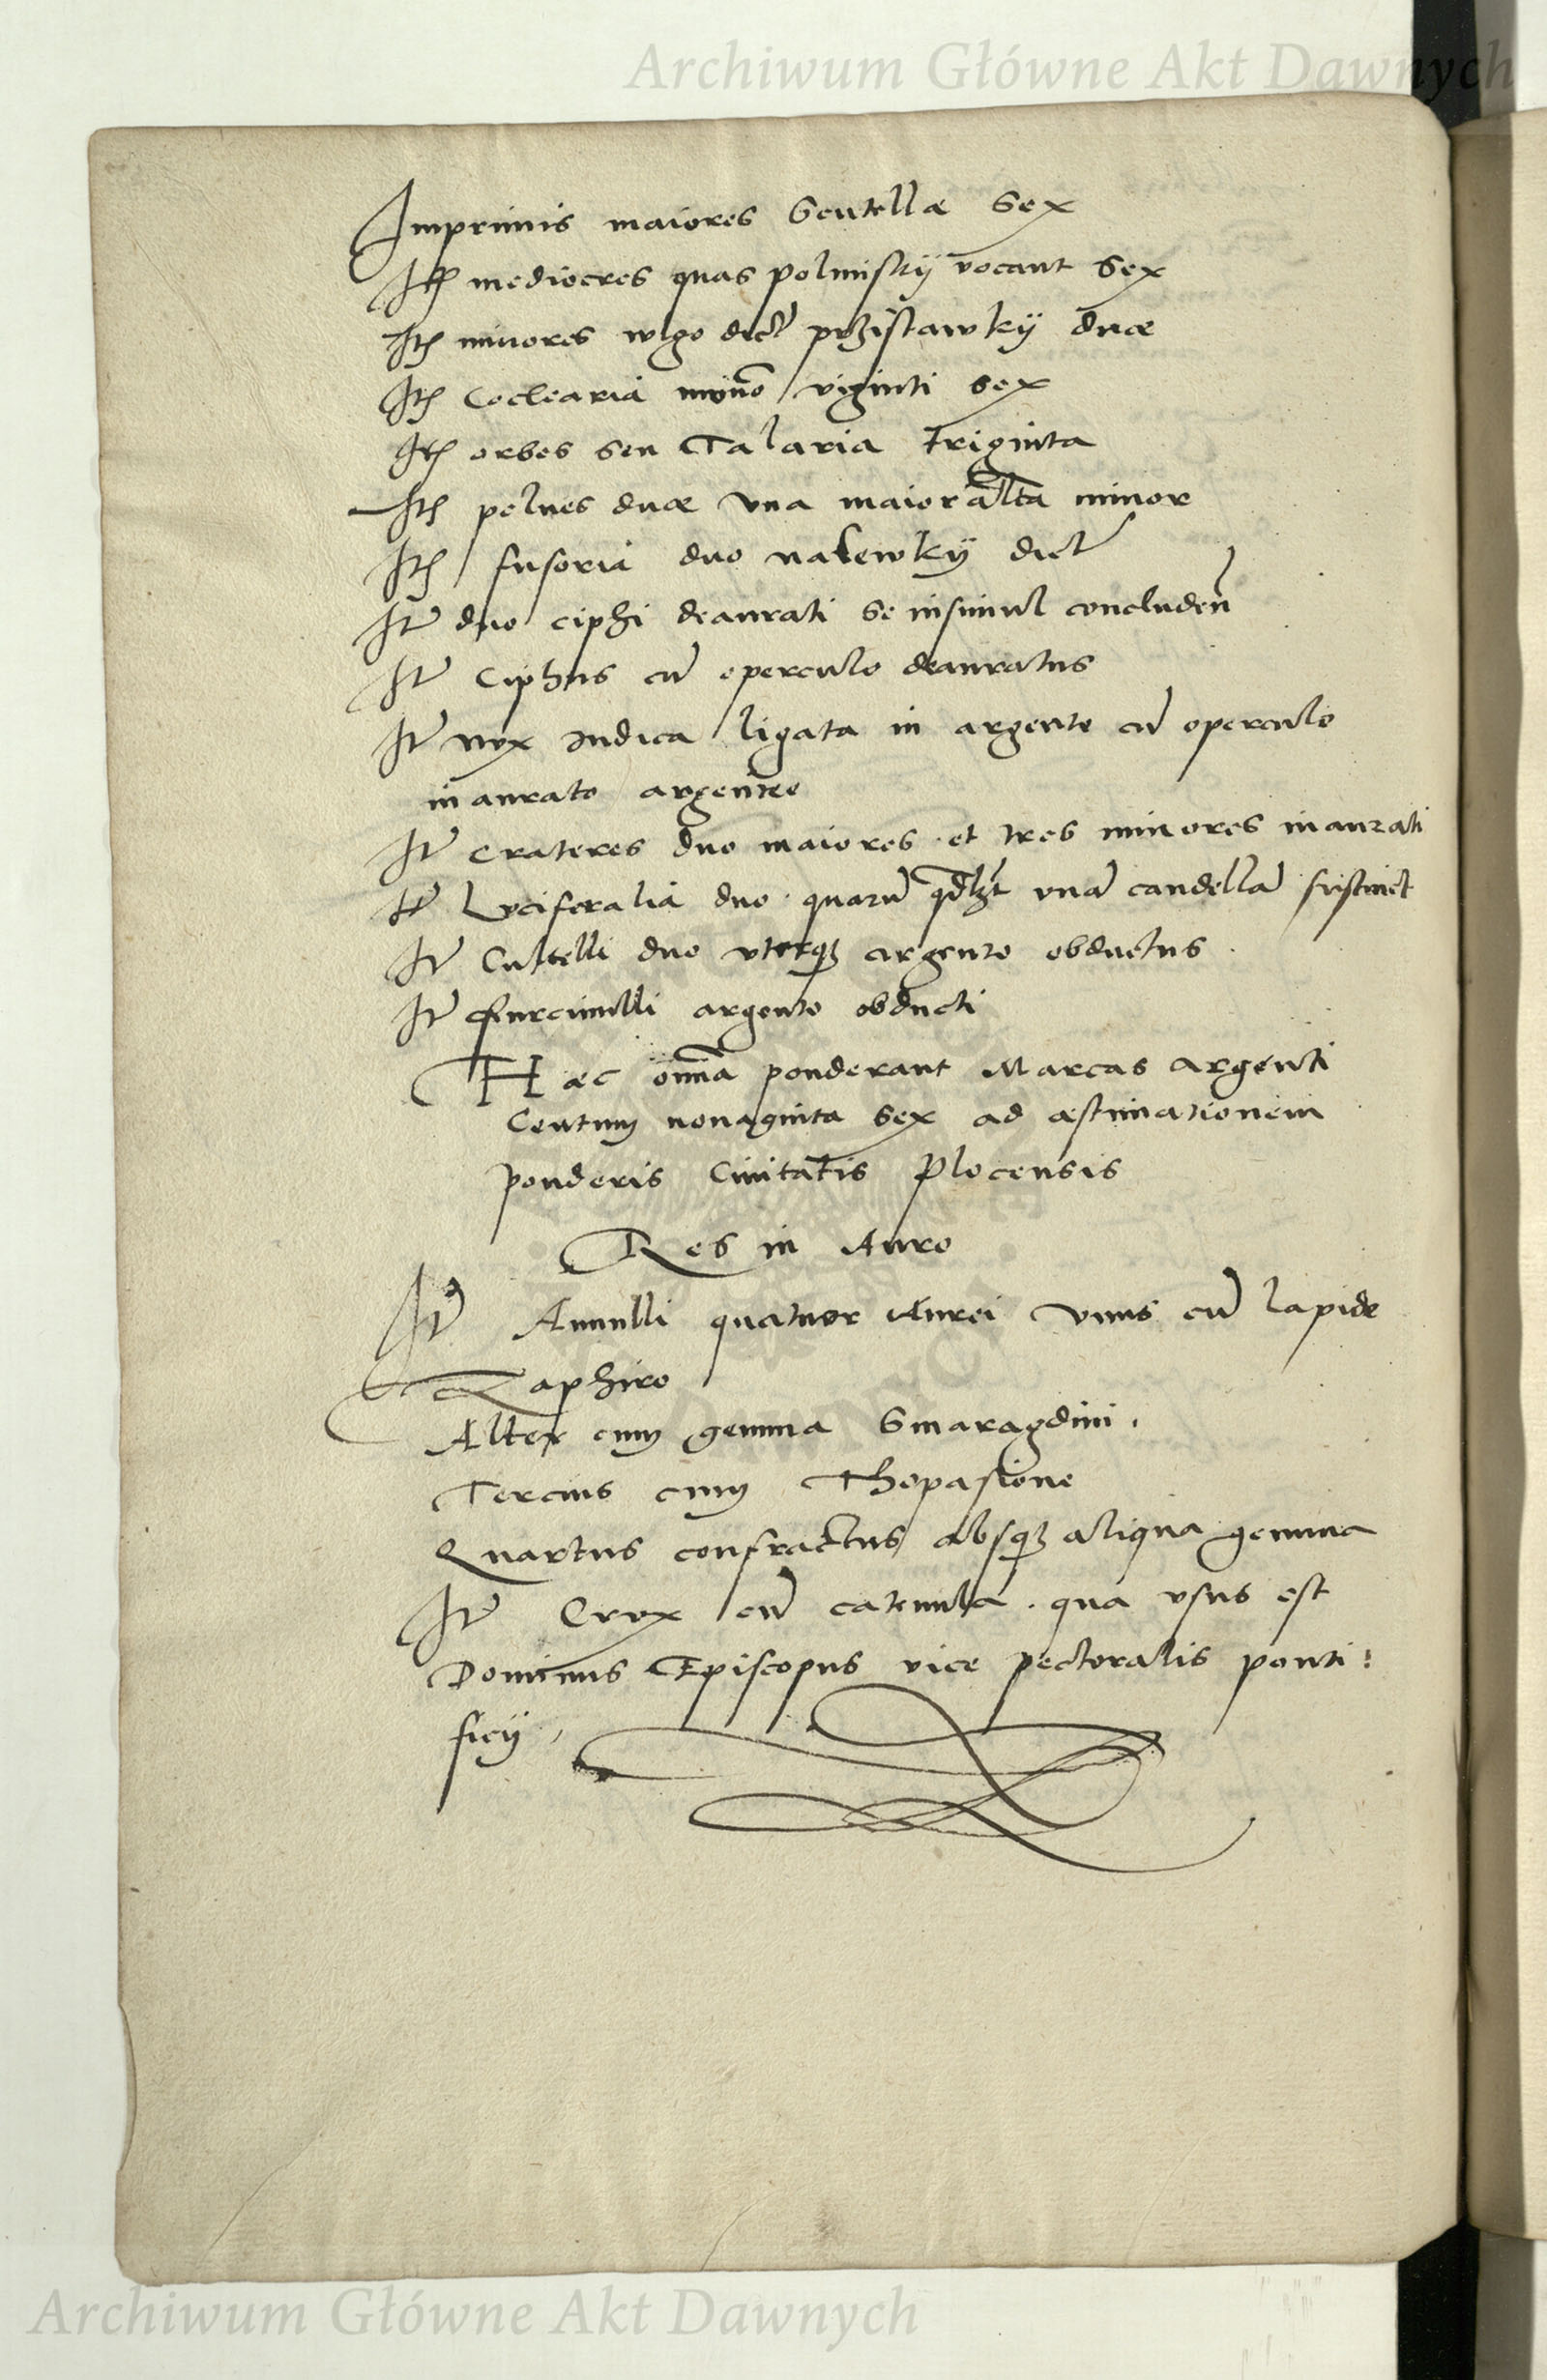 Archiwum Główne Akt Dawnych
Imprimis maiores Scutellæ Sex
Itē mediocres quas polmiskÿ vocant Sex
Itē minores wlgo dict przistawkÿ duæ
Itē Coclearia viginti sex
Itē orbes seu Talaria Triginta
Itē pelues duæ vna maior altā minor
Itē fusoria duo nalewkÿ dict
Itē duo ciphi deaurati se insimul concluden̄
Itē Ciphus cū operculo deauratus
Itē nvx Indica ligata in argento cū operculo
inaurato argenteo
Itē crateres duo maiores et tres minores inaurati
Itē Lvciferalia duo quarū qdlꝫt unā candellā sustinet
Itē Cultelli duo vterqꝫ argento obductus
Itē furcinulli argento obducti
Hæc om̄ia ponderant Marcas argenti
Centum nonaginta sex ad æstimationem
ponderis Ciuitatis Plocensis
Res in Auro
Itē Annulli quatuor Aurei vnus cū lapide
Zaphiro
Alter cum gemma Smaragdini.
Tercius cum Thopasione
Quartus confractus absqꝫ aliqua gemma
Itē Crvx cū catenula. qua vsus est
Dominus Episcopus vice pectoralis ponti:
ficÿ.
Archiwum Główne Akt Dawnych